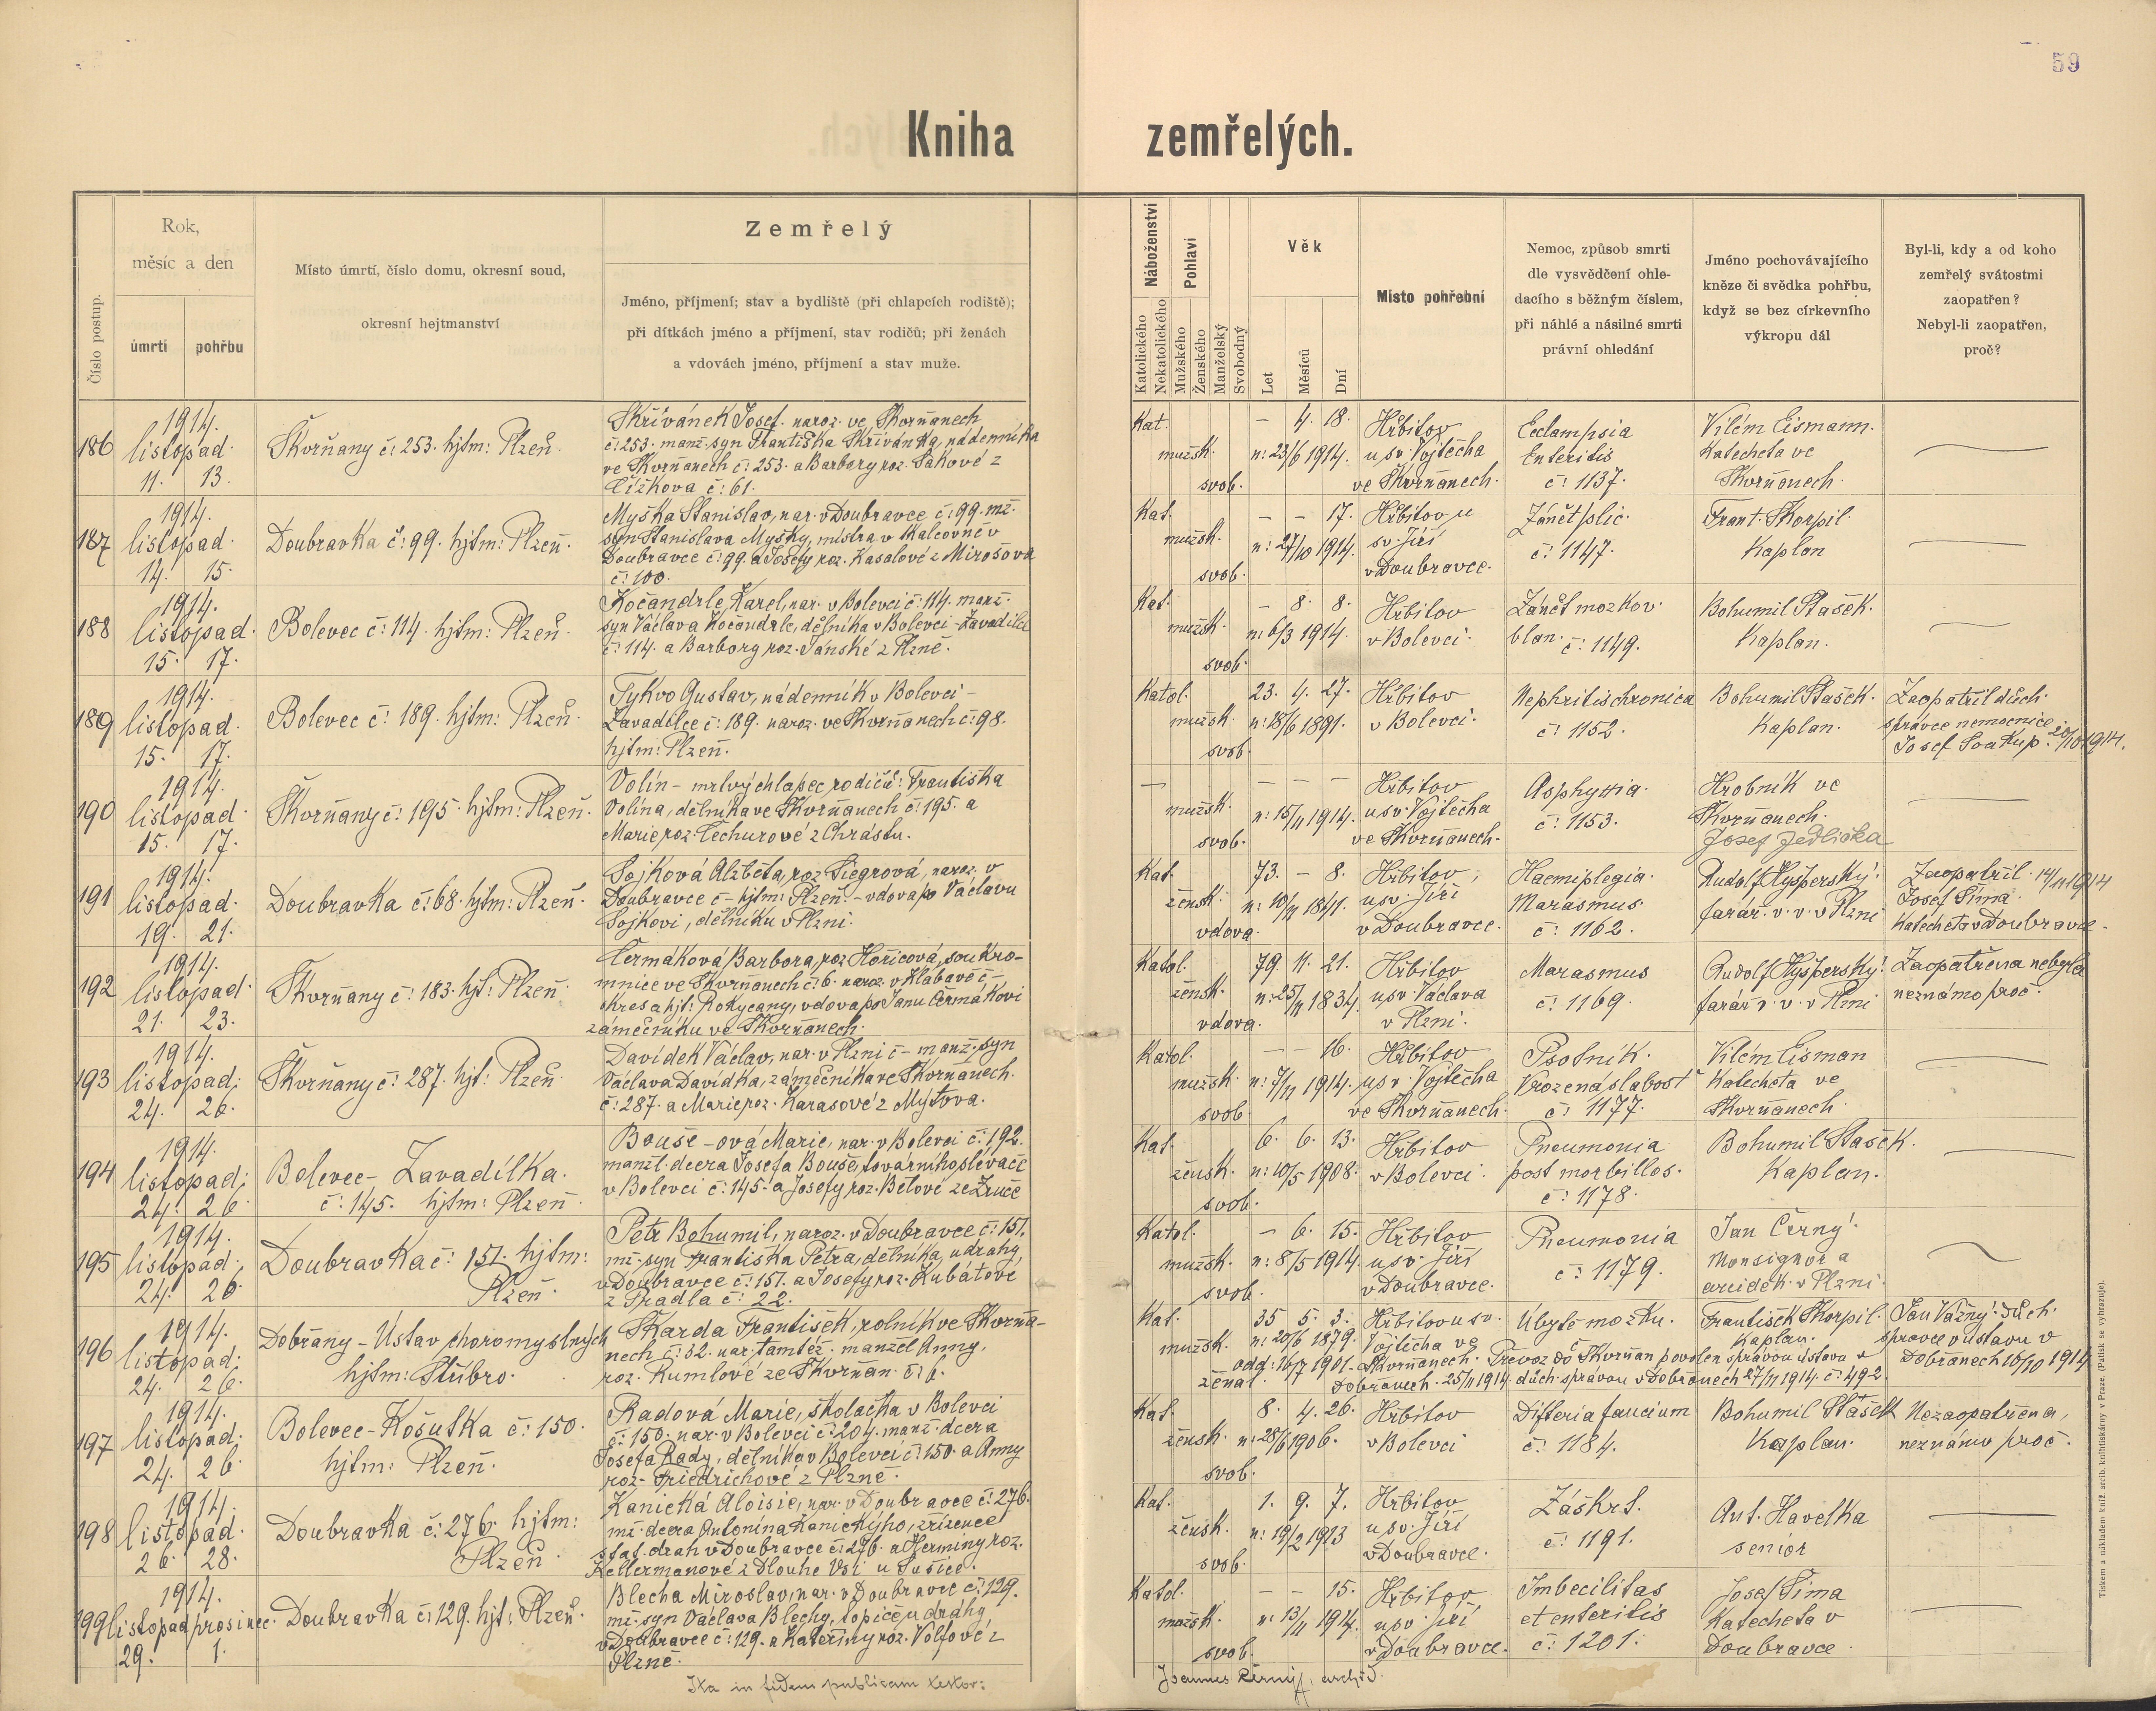 59
Kniha zemřelých.
Číslo postup.
Rok,
měsíc a den
úmrtí
pohřbu
Místo úmrtí, číslo domu, okresní soud,
okresní hejtmanství
Zemřelý
Jméno, příjmení; stav a bydliště (při chlapcích rodiště);
při dítkách jméno a příjmení, stav rodičů; při ženách
a vdovách jméno, příjmení a stav muže.
Náboženství
Katolického
Nekatolického
Pohlaví
Mužského
Ženského
Manželský
Svobodný
Věk
Let
Měsíců
Dní
Místo pohřební
Nemoc, způsob smrti
dle vysvědčení ohle-
dacího s běžným číslem,
při náhlé a násilné smrti
právní ohledání
Jméno pochovávajícího
kněze či svědka pohřbu,
když se bez církevního
výkropu dál
Byl-li, kdy a od koho
zemřelý svátostmi
zaopatřen?
Nebyl-li zaopatřen,
proč?
186
1914.
listopad.
11. 13.
Škvrňany č: 253. hjtm: Plzeň.
Skřivánek Josef. naroz. ve Škvrňanech
č: 253. manž. syn Františka Skřivánka, nádenníka
ve Škvrňanech č: 253. a Barbory roz. Sakové z
Čížkova č: 61.
Kat.
mužsk.
svob.
– 4. 18.
n: 23/6 1914.
Hřbitov
u sv. Vojtěcha
ve Škvrňanech.
Eclampsia
Enteritis
č: 1137.
Vilém Eismann.
Katecheta ve
Škvrňanech.
187
1914.
listopad.
14. 15.
Doubravka č: 99. hjtm: Plzeň.
Myška Stanislav, nar. v Doubravce č: 99. mž.
syn Stanislava Myšky, mistra v Kalcovně v
Doubravce č: 99. a Josefy roz. Kasalové z Mirošova
č: 100.
Kat.
mužsk.
svob.
– – 17.
n: 27/10 1914.
Hřbitov u
sv. Jiří
v Doubravce.
Zánět plic.
č: 1147.
Frant. Škorpil.
Kaplan
188
1914.
listopad.
15. 17.
Bolevec č: 114. hjtm: Plzeň.
Kočandrle Karel, nar. v Bolevci č: 114. manž.
syn Václava Kočandrle, dělníka v Bolevci - Zavadilce
č: 114. a Barbory roz. Janské z Plzně.
Kat.
mužsk.
svob.
– 8. 8.
n: 6/3 1914.
Hřbitov
v Bolevci.
Zánět mozkov.
blan. č: 1149.
Bohumil Stašek.
Kaplan.
189
1914.
listopad.
15. 17.
Bolevec č: 189. hjtm: Plzeň.
Tykvo Gustav, nádenník v Bolevci -
Zavadilce č: 189. naroz. ve Škvrňanech č: 98.
hjtm: Plzeň.
Katol.
mužsk.
svob.
23. 4. 27.
n: 18/6 1891.
Hřbitov
v Bolevci.
Nephritis chronica
č: 1152.
Bohumil Stašek.
Kaplan.
Zaopatřil duch.
správce nemocnice
Josef Soukup. 20/10 1914.
190
1914.
listopad.
15. 17.
Škvrňany č: 195. hjtm: Plzeň.
Volín - mrtvý chlapec rodičů: Františka
Volína, dělníka ve Škvrňanech č: 195. a
Marie roz. Čechurové z Chrástu.
mužsk.
svob.
– – –
n: 15/11 1914.
Hřbitov
u sv. Vojtěcha
ve Škvrňanech.
Asphyxia.
č: 1153.
Hrobník ve
Škvrňanech.
Josef Jedlička
191
1914.
listopad.
19. 21.
Doubravka č: 68. hjtm: Plzeň.
Sojková Alžběta, roz. Siegrová, naroz. v
Doubravce č – hjtm: Plzeň. - vdova po Václavu
Sojkovi, dělníku v Plzni.
Kat.
žensk.
vdova.
73. – 8.
n: 10/11 1841.
Hřbitov
u sv. Jiří
v Doubravce.
Haemiplegia.
Marasmus.
č: 1162.
Rudolf Kyšperský:
farář. v. v. v Plzni
Zaopatřil. 14/11 1914
Josef Šíma.
Katecheta v Doubravce.
192
1914.
listopad.
21. 23.
Škvrňany č: 183. hjt: Plzeň.
Čermáková Barbora, roz. Hořicová, soukro-
mnice ve Škvrňanech č: 6. naroz. v Klabavě č –
okres a hjt: Rokycany, vdova po Janu Čermákovi
zámečníku ve Škvrňanech.
Katol.
žensk.
vdova.
79. 11. 21.
n: 25/11 1834.
Hřbitov
u sv. Václava
v Plzni.
Marasmus
č: 1169.
Rudolf Kyšperský:
farář v. v. v Plzni
Zaopatřena nebyla
neznámo proč.
193
1914.
listopad:
24. 26.
Škvrňany č: 287. hjt: Plzeň.
Davídek Václav, nar. v Plzni č – manž. syn
Václava Davídka, zámečníka ve Škvrňanech.
č: 287. a Marie roz. Karasové z Mýtova.
Katol.
mužsk.
svob.
– – 16.
n: 7/11 1914.
Hřbitov
u sv. Vojtěcha
ve Škvrňanech.
Psotník.
Vrozená slabost
č: 1177.
Vilém Eisman
Katecheta ve
Škvrňanech.
194
1914.
listopad:
24. 26.
Bolevec - Zavadilka.
č: 145. hjtm: Plzeň.
Bouše - ová Marie, nar. v Bolevci č: 192.
manžl. dcera Josefa Bouše, továrního slévače
v Bolevci č: 145. a Josefy roz. Bělové ze Zruče
Kat.
žensk.
svob.
6. 6. 13.
n: 10/5 1908.
Hřbitov
v Bolevci.
Pneumonia
post morbillos.
č: 1178.
Bohumil Stašek.
Kaplan.
195
1914.
listopad:
24. 26.
Doubravka č: 151. hjtm:
Plzeň.
Petr Bohumil, naroz. v Doubravce č: 151.
mž. syn Františka Petra, dělníka u dráhy,
v Doubravce č: 151. a Josefy roz. Kubátové
z Pradla č: 22.
Katol.
mužsk.
svob.
– 6. 15.
n: 8/5 1914.
Hřbitov
u sv. Jiří
v Doubravce.
Pneumonia
č: 1179.
Jan Černý.
Monsignor a
arciděk. v Plzni.
196
1914.
listopad:
24. 26.
Dobřany - Ústav choromyslných
hjtm: Stříbro.
Škarda František, rolník ve Škvrňa-
nech č: 32. nar. tamtéž. manžel Anny,
roz. Kumlové ze Škvrňan. č: 6.
Kat.
mužsk.
ženat.
35 5. 3.
n: 20/6 1879.
odd: 16/7 1901.
Hřbitov u sv.
Vojtěcha ve
Škvrňanech.
Ubytě mozku.
František Škorpil.
Kaplan.
Převoz do Škvrňan povolen správou ústavu v
Dobřanech. 25/11 1914. duch. správou v Dobřanech 27/11 1914. č: 492.
Jan Vážný: duch.
správce v ústavu v
Dobřanech 16/10 1914
197
1914.
listopad.
24. 26.
Bolevec - Košutka č: 150.
hjtm: Plzeň.
Radová Marie, školačka v Bolevci
č: 150. nar. v Bolevci č: 204. manž. dcera
Josefa Rady, dělníka v Bolevci č: 150. a Anny
roz. Friedrichové z Plzně.
Kat.
žensk.
svob.
8. 4. 26.
n: 28/6 1906.
Hřbitov
v Bolevci
Difteria faucium
č: 1184.
Bohumil Stašek
Kaplan.
Nezaopatřena,
neznámo proč.
198
1914.
listopad.
26. 28.
Doubravka č: 276. hjtm:
Plzeň.
Kanická Aloisie, nar. v Doubravce č: 276.
mž. dcera Antonína Kanickýho, zřízence
stat. drah v Doubravce č: 276. a Herminy roz.
Kellermanové z Dlouhé Vsi u Sušice.
Kat.
žensk.
svob.
1. 9. 7.
n: 19/2 1913
Hřbitov
u sv. Jiří
v Doubravce.
Záškrt.
č: 1191.
Ant. Havelka
senior
199
1914.
listopad prosinec.
29. 1.
Doubravka č: 129. hjt: Plzeň.
Blecha Miroslav, nar. v Doubravce č: 129.
mž. syn Václava Blechy, topiče u dráhy,
v Doubravce č: 129. a Kateřiny roz. Volfové z
Plzně.
Katol.
mužsk.
svob.
– – 15.
n: 13/11 1914.
Hřbitov
u sv. Jiří
v Doubravce.
Imbecilitas
et enteritis
č: 1201.
Josef Šíma
Katecheta v
Doubravce.
Ita in fidem publicam testor:
Joannes Černý, archid.
Tiskem a nákladem kníž. arcib. knihtiskárny v Praze. (Patisk se vyhrazuje).